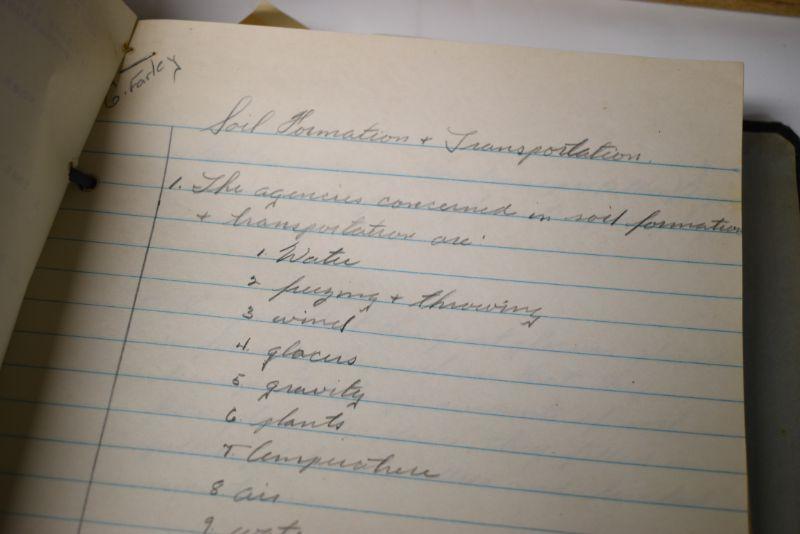 G. Farley
Soil Formation + Transportation.
1. The agencies concerned in soil formation
+ transportation are:
1 Water
2 freezing + throwing
3 wind
4. glaciers
5 gravity
6 plants
7 temperature
8 air
9